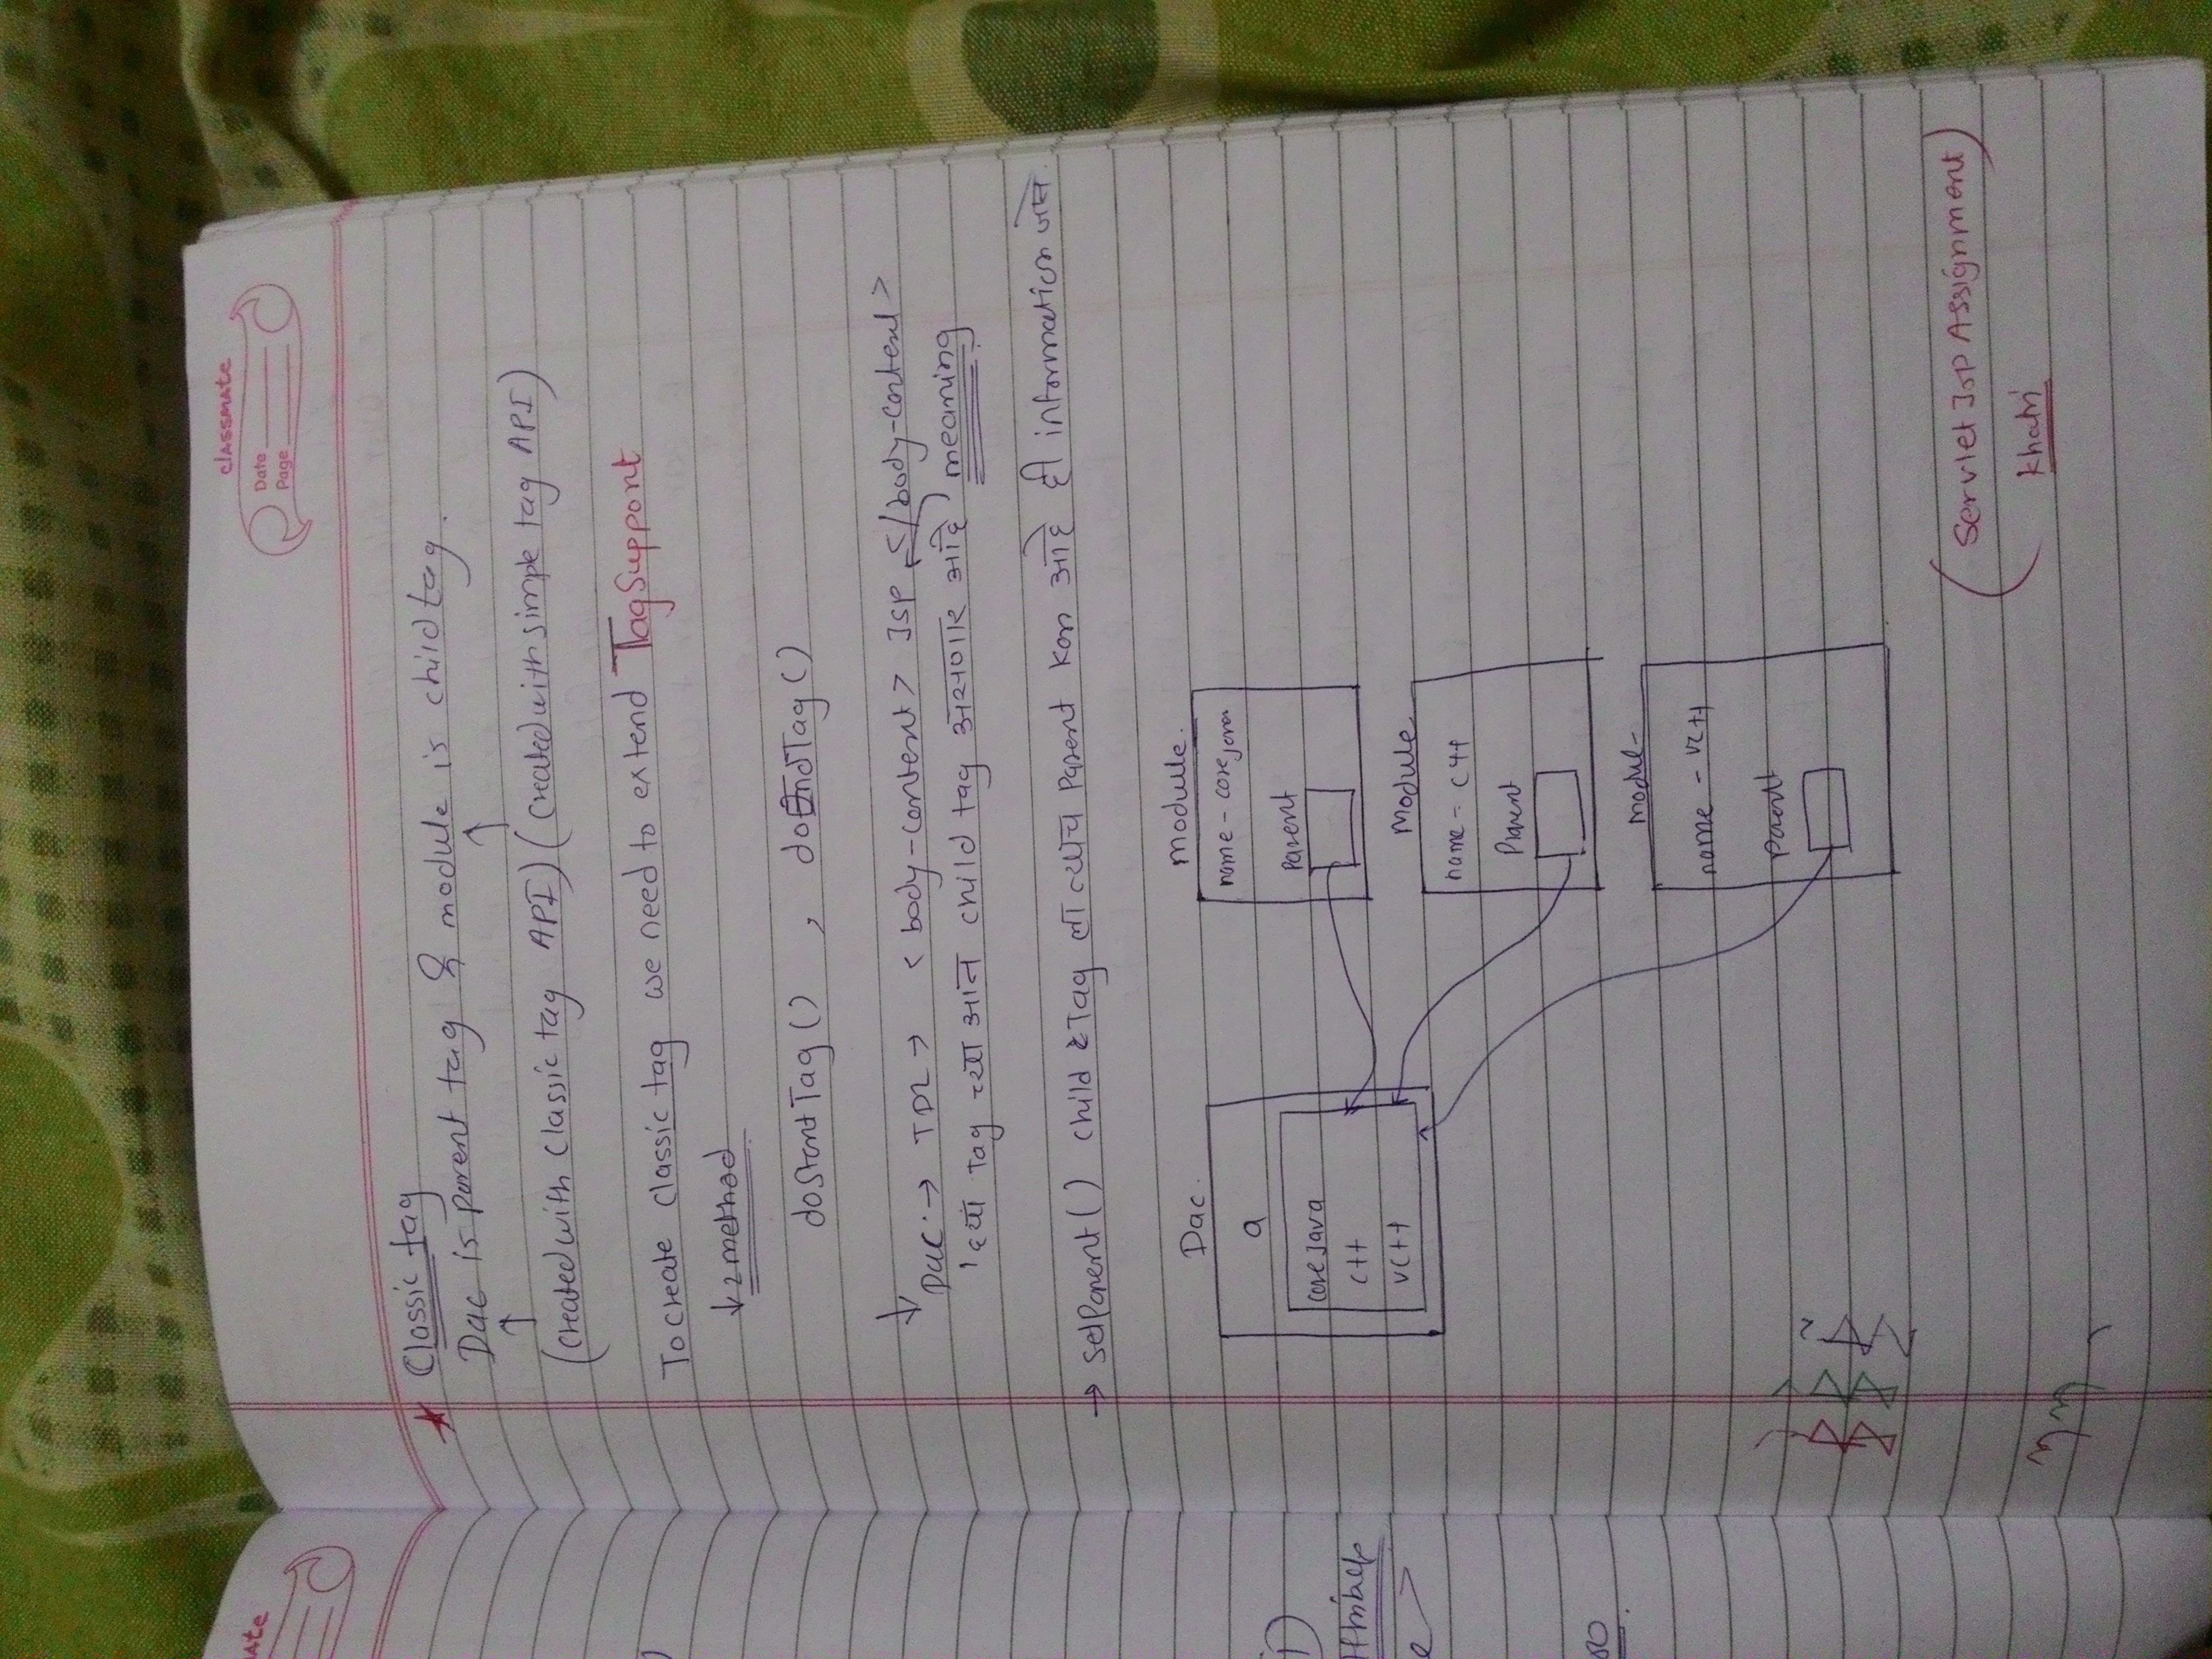 classmate
Date
Page
Classic tag
Dac is parent tag & module is child tag.
(created with Classic tag API) (created with simple tag API)
To create classic tag we need to extend TagSupport
2 method
doStartTag() , doEndTag()
Dac → TDL → <body-content> JSP </body-content>
Tag च्या आत child tag असणार आहे meaning
→ setParent() child Tag ला त्याच Parent kon आहे ही information
Dac.
a
core Java
C++
VC++
Module.
name - core java
Parent
Module
name - C++
Parent
Modul-
name - VC++
Parent
(Servlet JSP Assignment)
Khatri